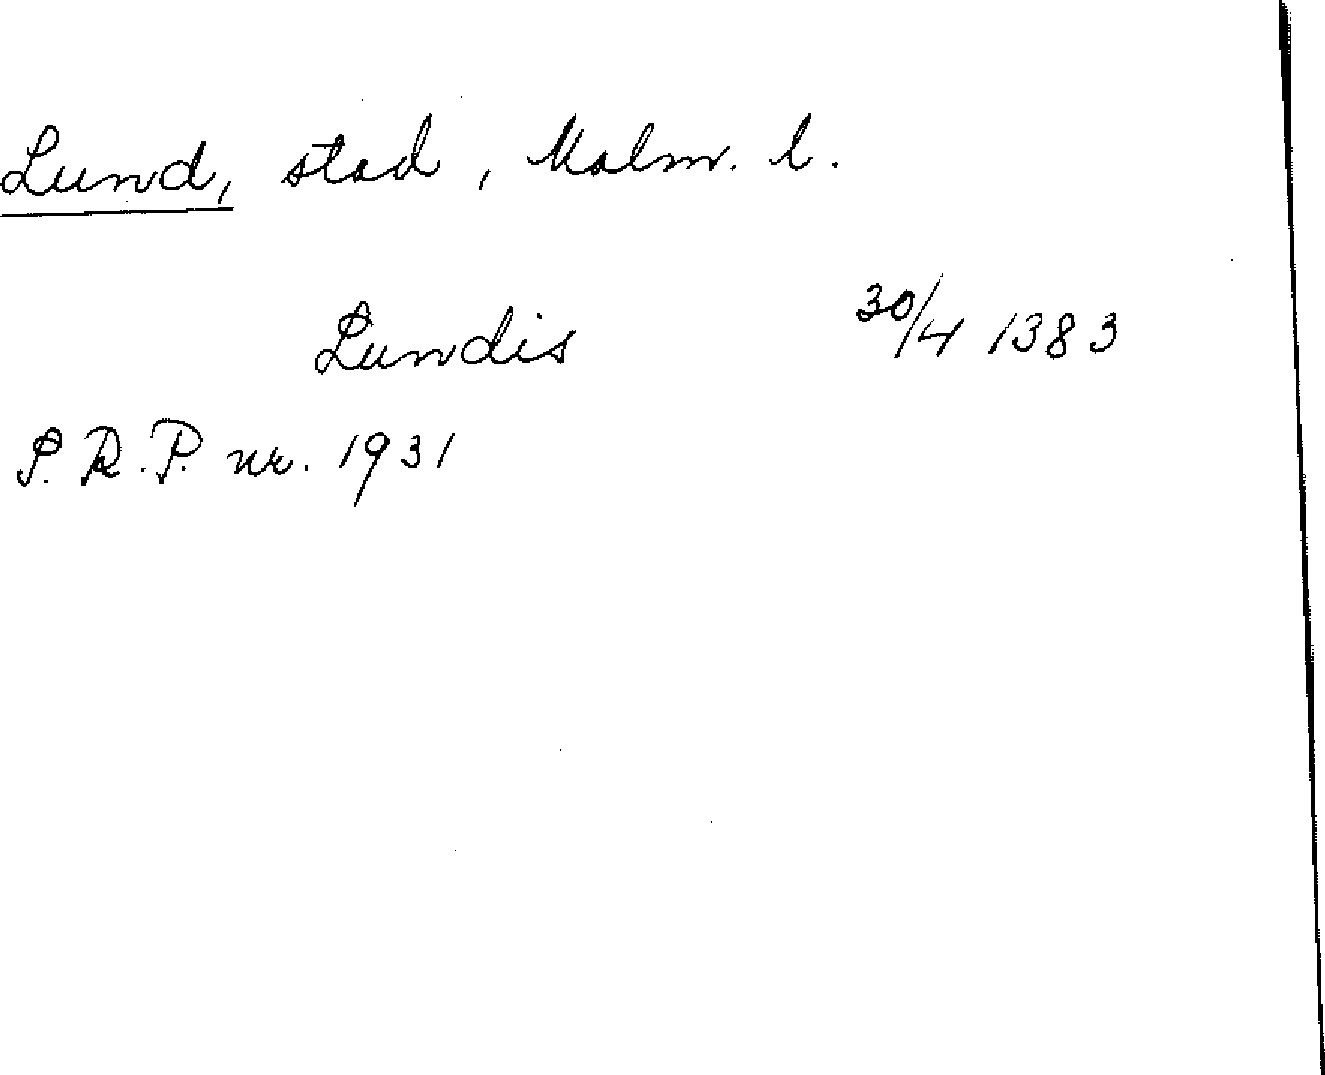 Lund, stad, Malm. l.
Lundis 30/4 1383
S.R.P. nr. 1931